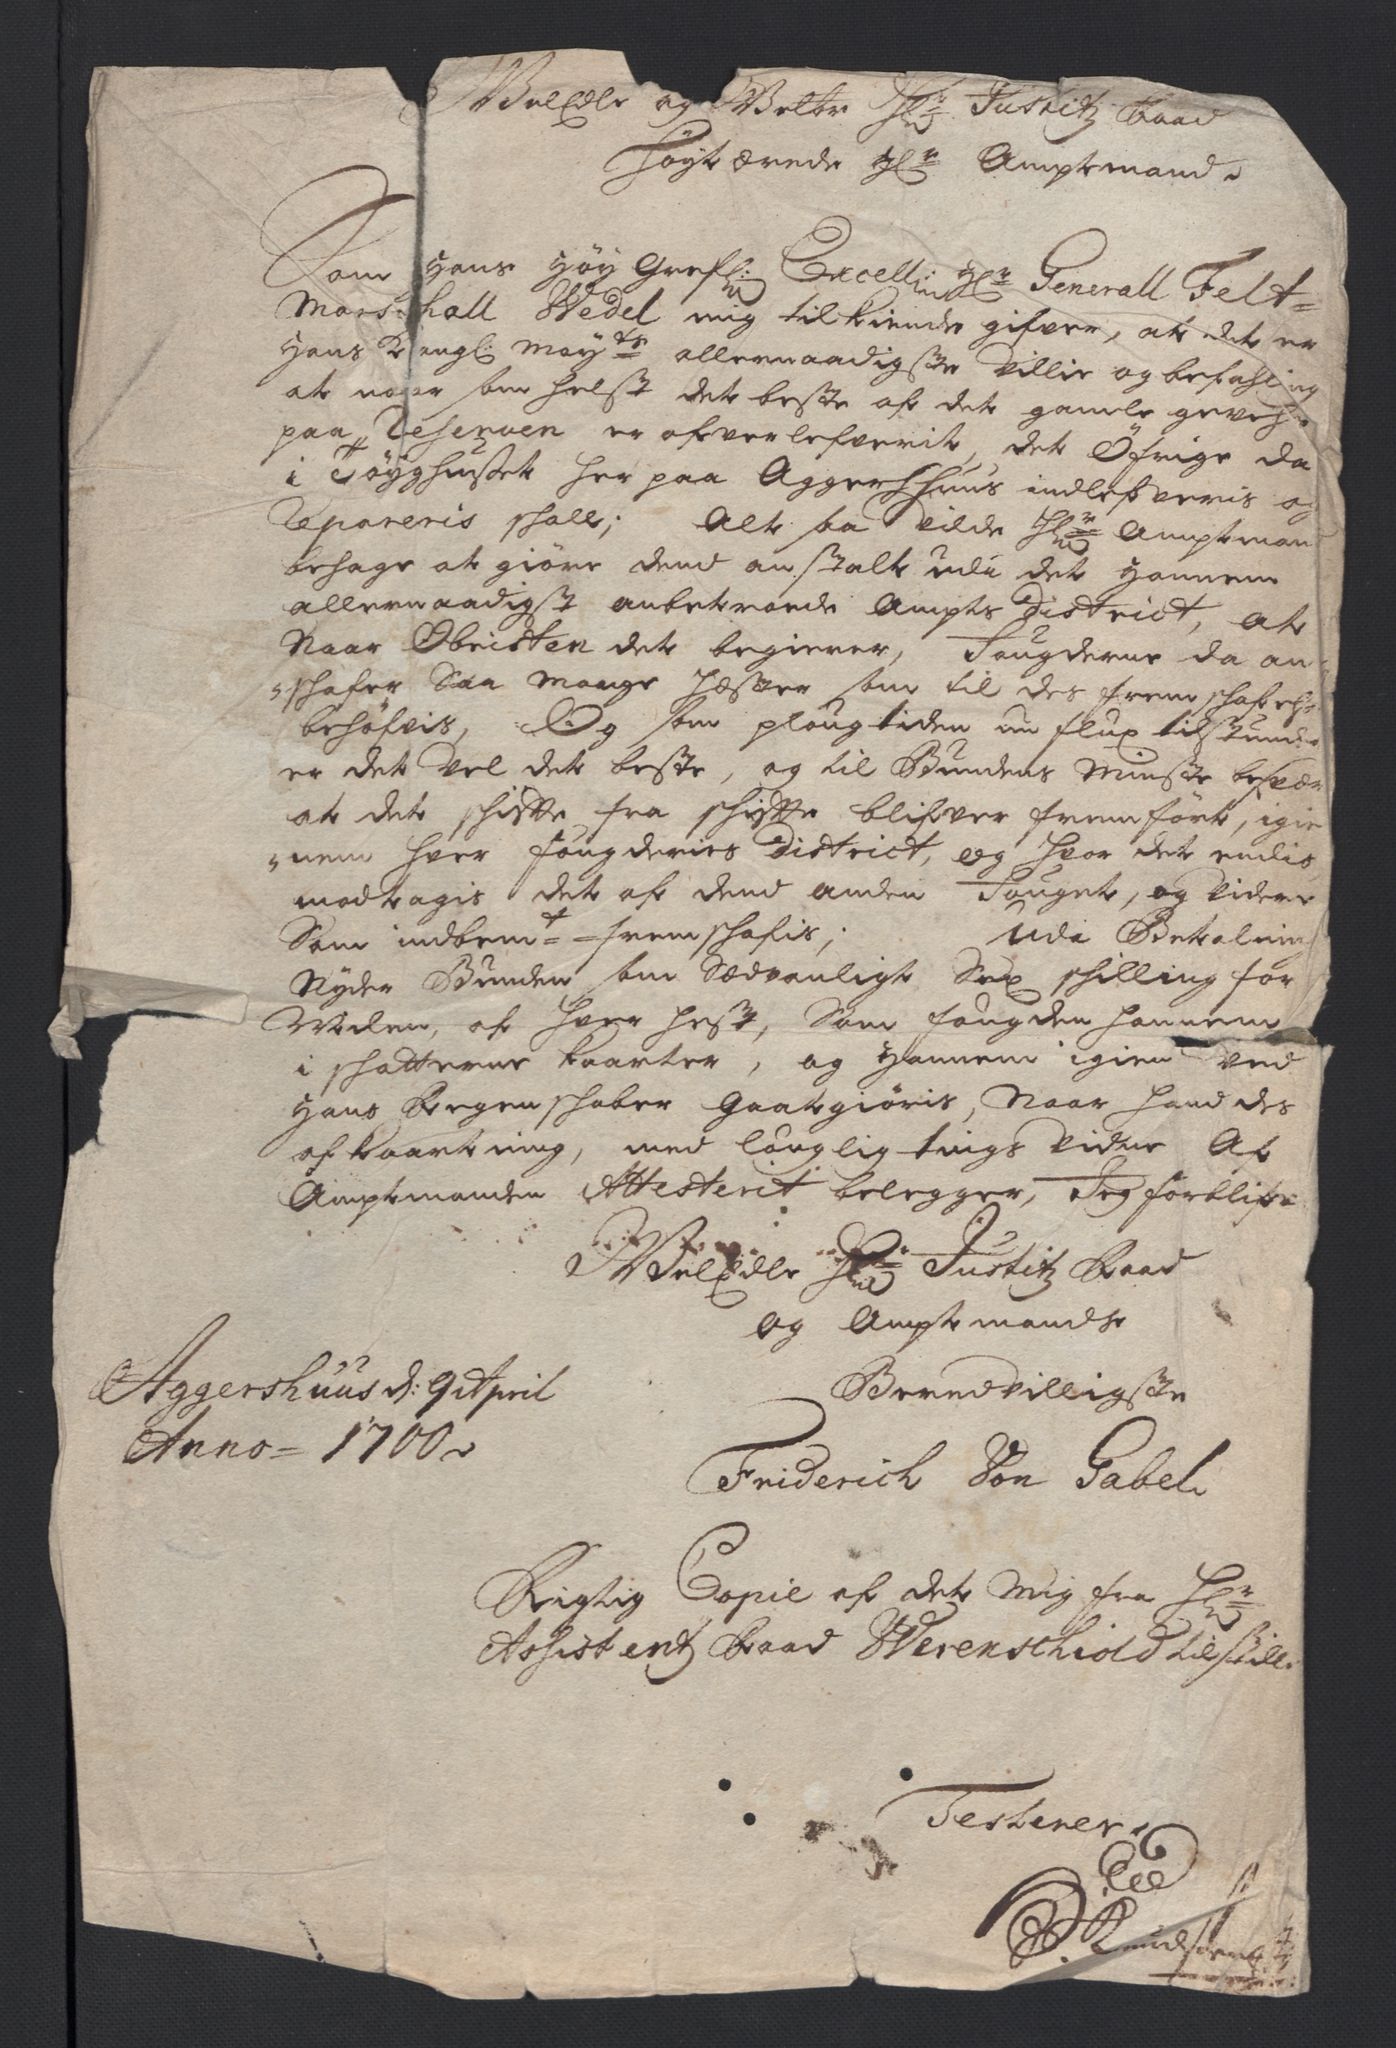 WelEdle og Welbr Hr Justitz Raad
Høyt ærede Hr Amptmand.
Som Hans Høy Grefl: Excell: Hr Generall Felt-
Marschall Wedel mig tilkiende gifver, at det er
Hans Kongl: Maytts allernaadigste Villie og befahling
at naar som helst det beste af det gamle gevehr
paa Reserven er ofverlefverit, det Öfrige da
i Töyghuset her paa Aggershuus indlefveris og
Repareris schall; Alt saa vilde Hr Amptman
behage at giøre dend anstalt udi det Hannem
allernaadigst anbetroede Ampts District, at
Naar Obristen det begierer, Fougderne da an-
schafer Saa mange Hæster som til des fremschafelse
behöfvis, Og som ploug tiden nu flux tilstunder
er det vel det beste, og til Bundens Minste besvær
at det schifte fra schifte blifver fremfört, igie
nem hver fougderies District, og hvor det endis,
modtagis det af dend anden Fouget, og videre
Som indbemt fremschafis; Udi Betaling
Nyder Bunden som Sædvanligt Sex schilling for
Milen, af hver hest, Som fougden hannem
i schatterne kaarter, og Hannem igien ved
Hans Regenschaber Gaatgiöris, Naar hand des
afkaartning, med louglig tings vidne Af
Amptmanden Attesterit belegger, Jeg forblifr
WelEdle Hr Justitz Raad
og Amptmands
Beredvilligste
Aggershuus d: 9 April
Anno 1700.
Friderich Von Gabel.
Rigtig Copie af det mig fra Hr
Assistentz Raad Werenschiold tilstillt
Testerer.
Knudsen